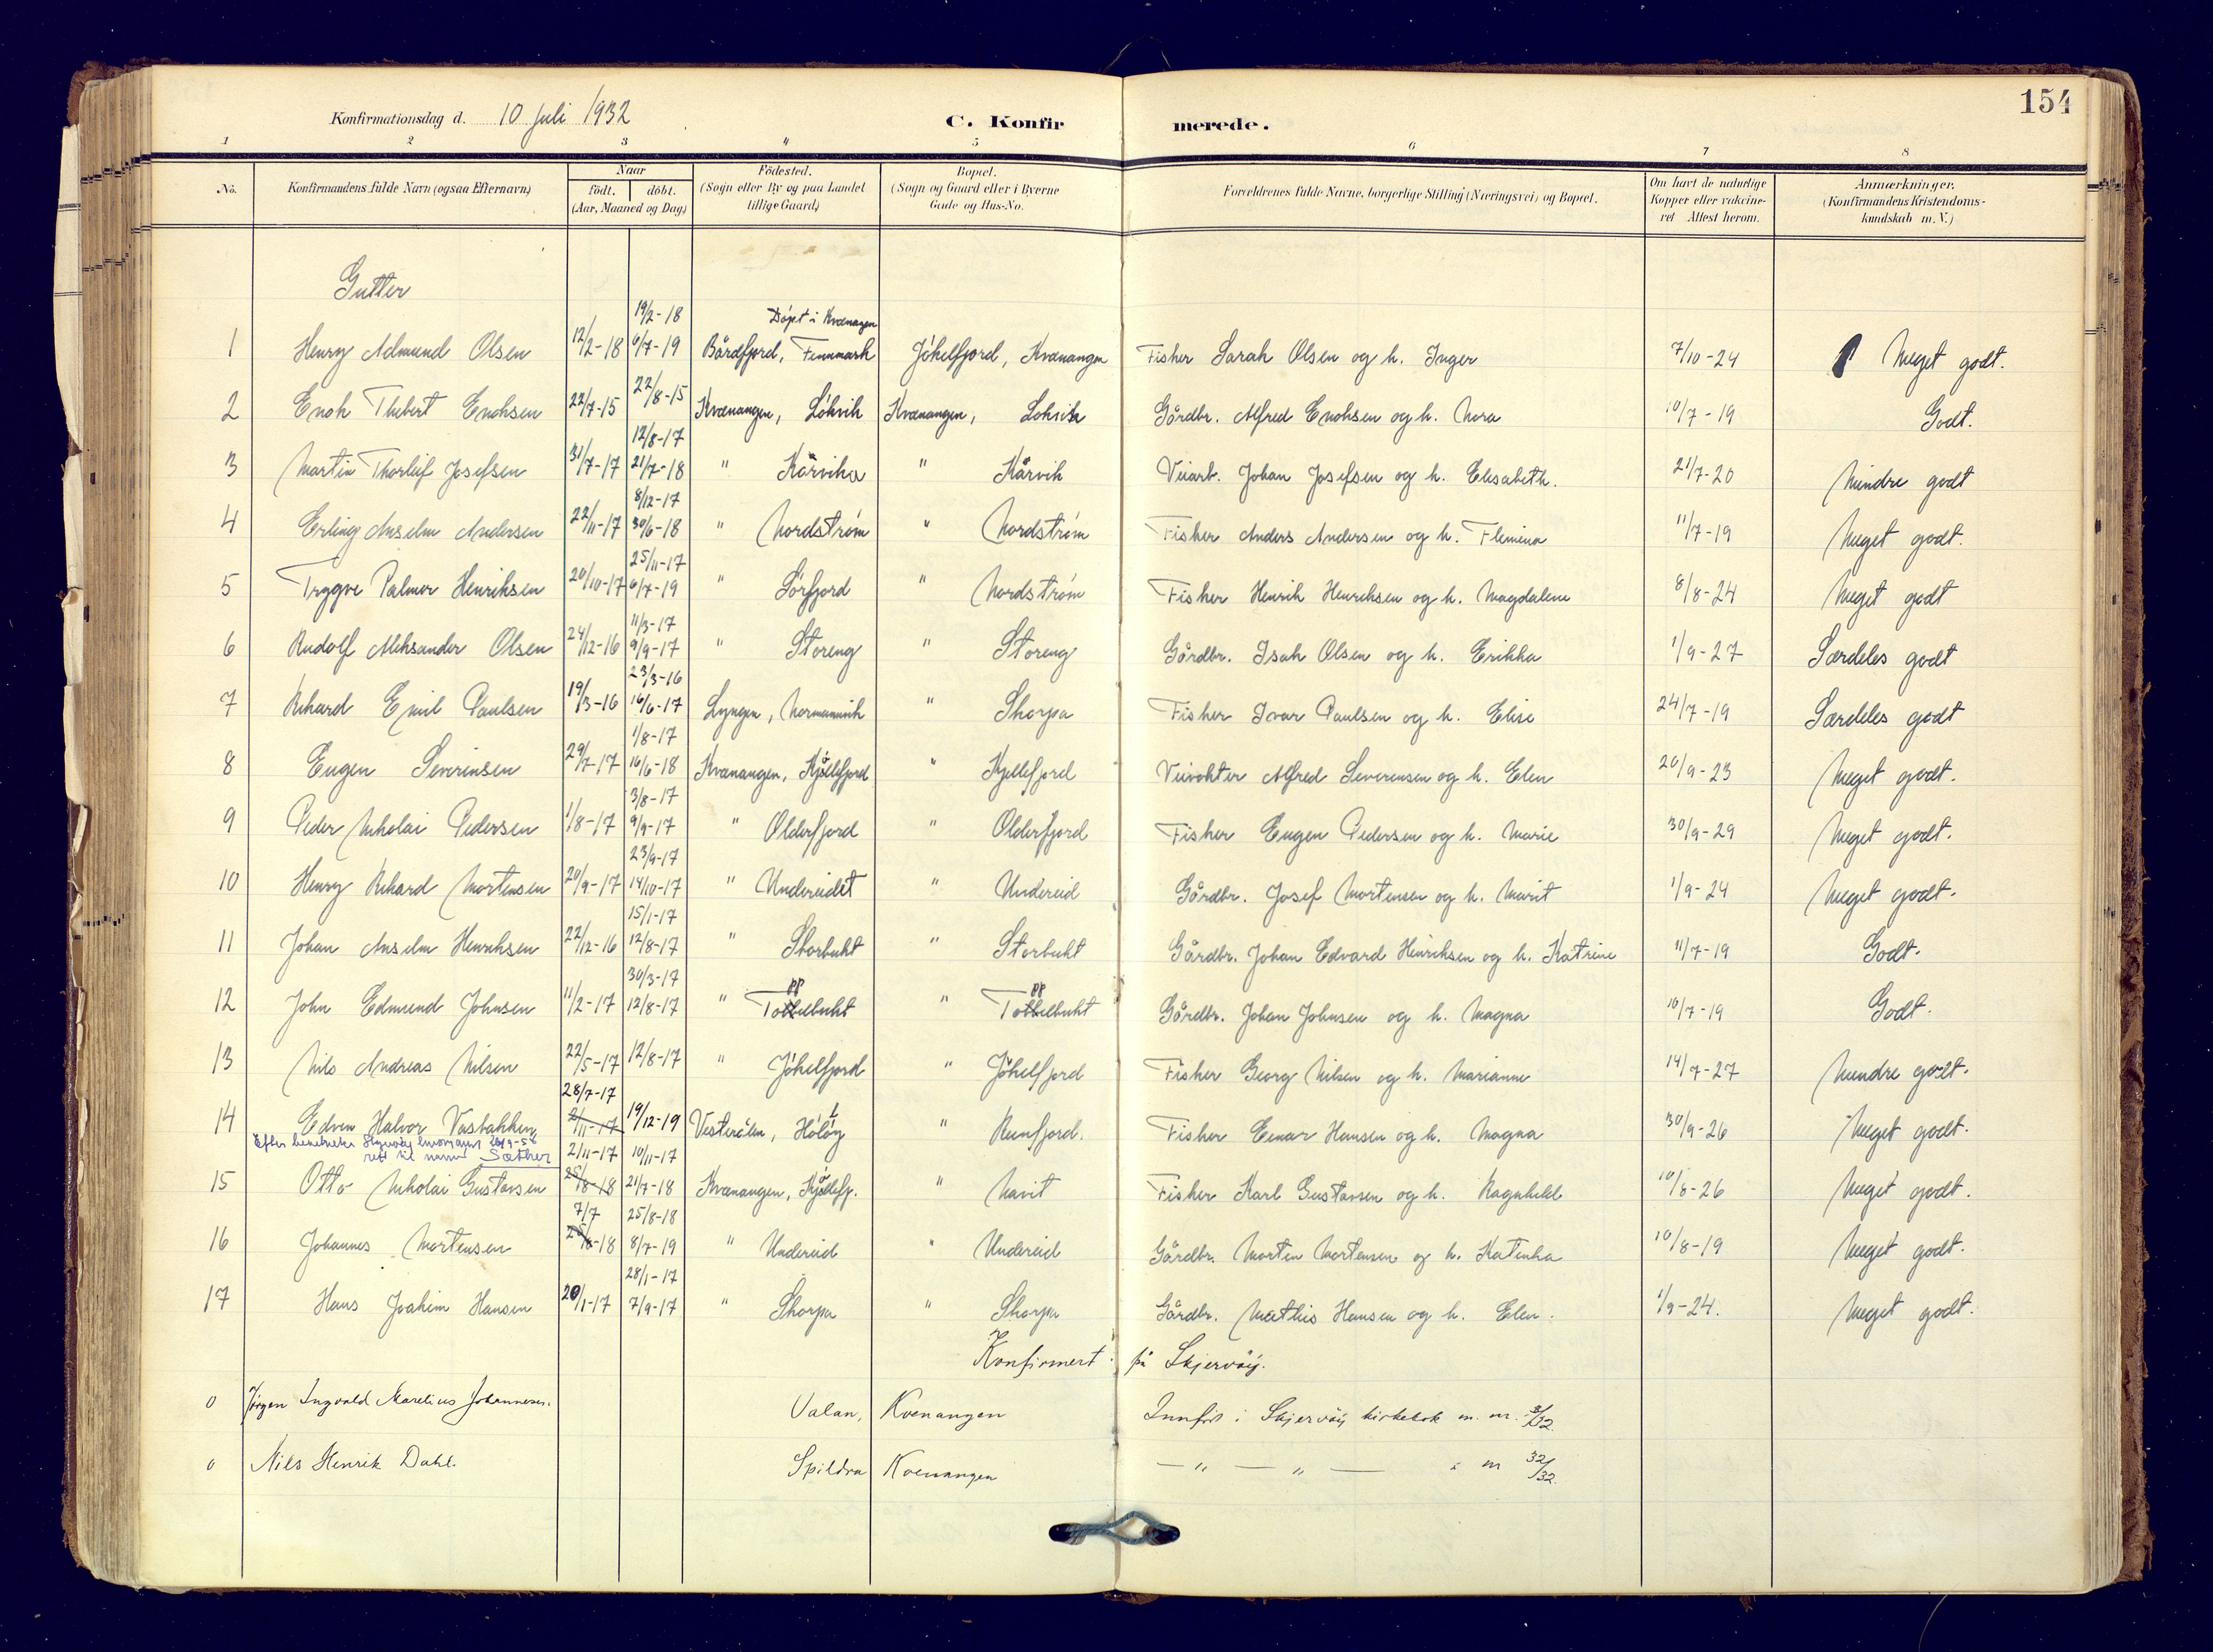 154
Konfirmationsdag d. 10 juli 1932
C. Konfirmerede.
1 2 3 4 5 6 7 8
No. Konfirmandens fulde Navn (ogsaa Efternavn) Naar født. døbt. (Aar, Maaned og Dag) Fødested. (Sogn eller By og paa Landet tillige Gaard) Bopæl. (Sogn og Gaard eller i Byerne Gade og Hus-No. Forældrenes fulde Navne, borgerlige Stilling (Næringsvei) og Bopæl. Om havt de naturlige Kopper eller vakcineret Attest herom. Anmærkninger. (Konfirmandens Kristendomskundskab m. V.)
Gutter
19/2-18 Döpt i Kvænangen
1 Henry Admund Olsen 12/2-18 6/7-19 Bårdfjord, Finnmark Jökelfjord, Kvænangen Fisker Sarak Olsen og h. Inger 7/10-24 Meget godt.
2 Enok Thebert Enoksen 22/7-15 22/8-15 Kvænangen, Lökvik Kvænangen, Lokvik Gårdbr. Alfred Enoksen og h. Nora 10/7-19 Godt.
12/8-17
3 Martin Thorleif Josefsen 31/7-17 21/7-18 " Kårvika " Kårvik Veiarb. Johan Josefsen og h. Elisabeth. 21/7-20 Mindre godt
8/12-17
4 Erling Anselm Andersen 22/11-17 30/6-18 " Nordstrøm " Nordstrøm Fisker Anders Andersen og h. Flemina 11/7-19 Meget godt.
25/11-17
5 Trygve Palmer Henriksen 20/10-17 6/7-19 " Sörfjord " Nordstrøm Fisker Henrik Henriksen og h. Magdalene 8/8-24 Meget godt
11/3-17
6 Rudolf Aleksander Olsen 24/12-16 9/9-17 " Storeng " Storeng Gårdbr. Isak Olsen og h. Erikka 1/9-27 Særdeles godt
23/3-16
7 Rikard Emil Paulsen 19/3-16 16/6-17 Lyngen, Normannvik " Skorpa Fisker Ivar Paulsen og h. Elise 24/7-19 Særdeles godt
1/8-17
8 Eugen Severinsen 29/7-17 16/6-18 Kvænangen, Kjøllefjord " Kjellefjord Veivokter Alfred Severinsen og h. Elen 20/9-23 Meget godt.
3/8-17
9 Peder Nikolai Pedersen 1/8-17 9/9-17 " Olderfjord " Olderfjord Fisker Eugen Pedersen og h. Marie 30/9-29 Meget godt.
23/9-17
10 Henry Rikard Mortensen 20/9-17 14/10-17 " Undereidet " Undereid Gårdbr. Josef Mortensen og h. Marit 1/9-24 Meget godt.
15/1-17
11 Johan Anselm Henriksen 22/12-16 12/8-17 " Storbukt " Storbukt Gårdbr. Johan Edvard Henriksen og h. Katrine 11/7-19 Godt.
30/3-17 pp pp
12 John Edmund Johnsen 11/2-17 12/8-17 " Tottelbukt " Tottelbukt Gårdbr. Johan Johnsen og h. Magna 10/7-19 Godt.
13 Nils Andreas Nilsen 22/5-17 12/8-17 " Jökelfjord " Jökelfjord Fisker Georg Nilsen og h. Marianne 14/7-27 Mindre godt.
28/7-17
14 Edvin Halvor Vasbakken 2/11-17 19/12-19 Vesterålen, " Reinfjord. Fisker Einar Hansen og h. Magna 30/9-26 Meget godt.
rett til navnet Sæther 2/11-17 10/11-17
15 Otto Nikolai Gustavsen 21/7-18 Kvænangen, Kjøllefj. " Navit Fisker Karl Gustavsen og h. Ragnhild 10/8-26 Meget godt.
7/7 25/8-18
16 Johannes Mortensen -18 8/7-19 " Undereid " Undereid Gårdbr. Morten Mortensen og h. Katinka 10/8-19 Meget godt.
28/1-17
17 Hans Joakim Hansen 20/1-17 7/9-17 " Skorpa " Skorpa Gårdbr. Mathis Hansen og h. Elen. 1/9-24. Meget godt.
Konfirmert på Skjervöy.
0 Jörgen Ingvald Marelius Johannesen. Valan, Kvenangen Innfört i Skjervöy kirkebok m. nr.
0 Nils Henrik Dahl. Spildra Kvenangen — " — " — " nr 32/32.